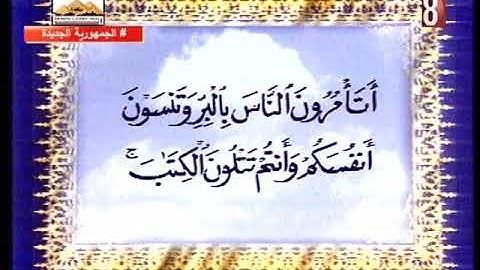 8
# الجمهورية الجديدة
أَتَأْمُرُونَ ٱلنَّاسَ بِٱلْبِرِّ وَتَنسَوْنَ
أَنفُسَكُمْ وَأَنتُمْ تَتْلُونَ ٱلْكِتَٰبَ ۚ